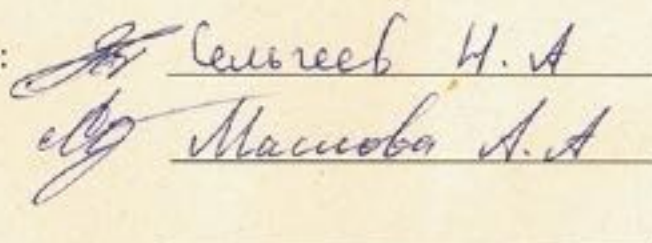 : Сельгеев Н. А
Маслова А. А